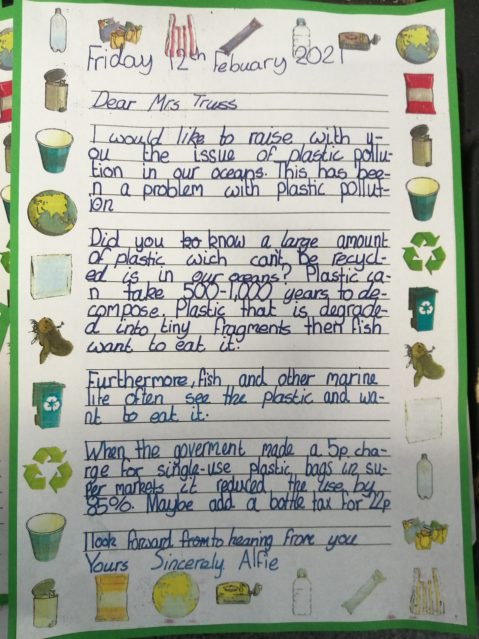 Friday 12th Febuary 2021
Dear Mrs Truss
I would like to raise with y-
ou the issue of plastic pollu-
tion in our oceans. This has bee-
n a problem with plastic pollut-
ion
Did you too know a large amount
of plastic wich can't be recycl-
ed is in our oceans? Plastic ca-
n take 500-1,000 years to de-
compose. Plastic that is degrade-
d into tiny fragments then fish
want to eat it.
Furthermore, fish and other marine
life often see the plastic and wa-
nt to eat it.
When the goverment made a 5p cha-
rge for single-use plastic bags in su-
per markets it reduced the use by
85%. Maybe add a bottle tax for 22p
I look forward from to hearing from you
Yours Sincerely Alfie